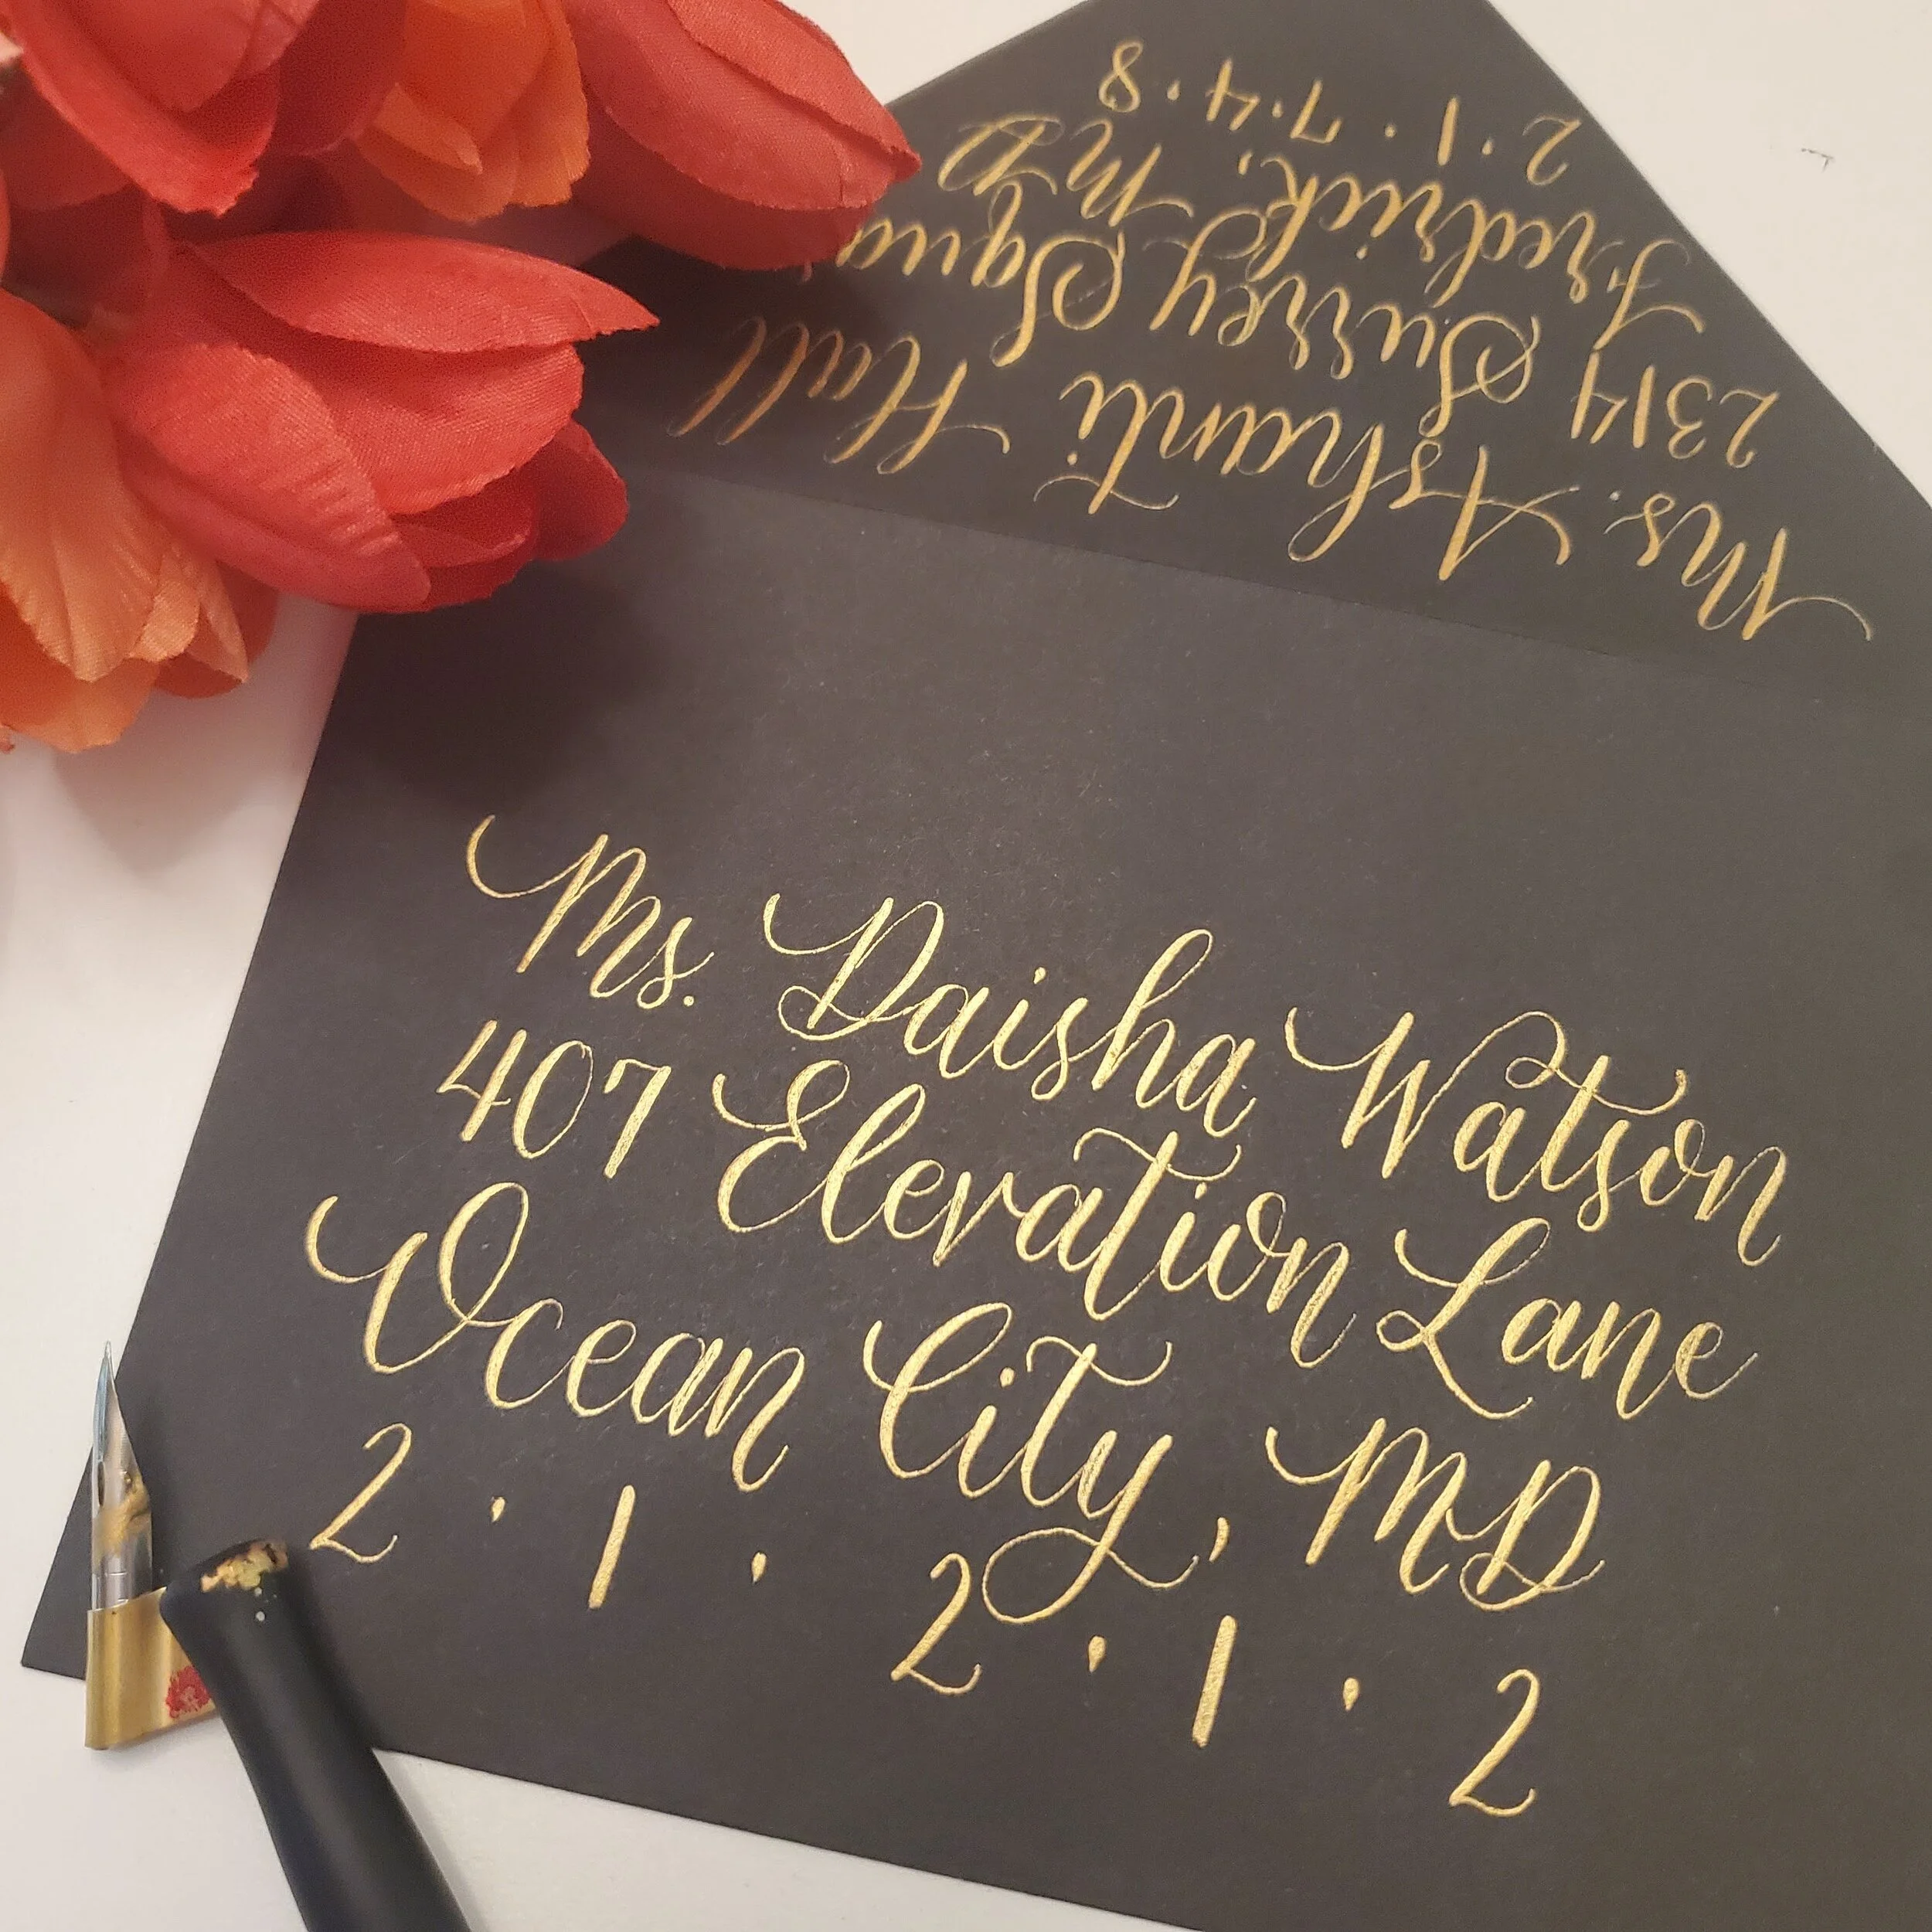 Ms. Ashanti Hall
2314 Surrey Squa
Fredrick, MD
2·1·7·4·8
Ms. Daisha Watson
407 Elevation Lane
Ocean City, MD
2·1·2·1·2